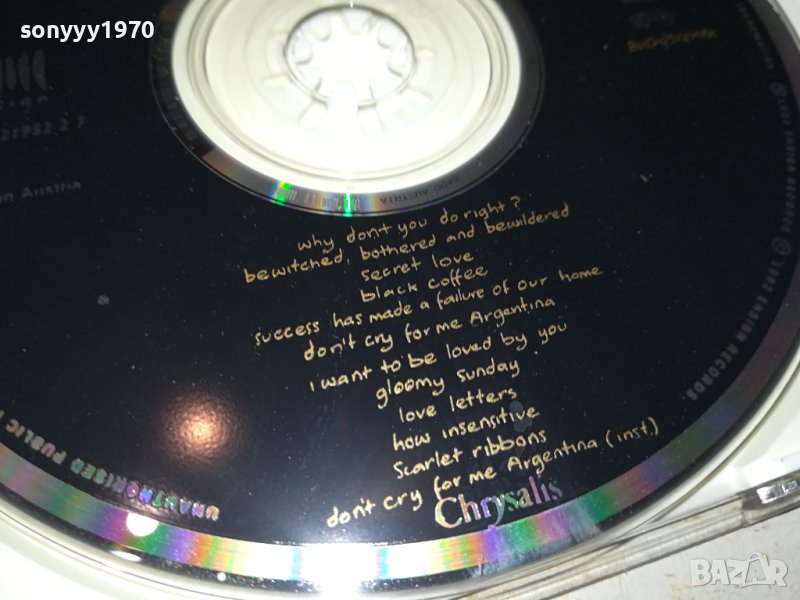 sonyyy1970
21952 2
in Austria
DADC AUSTRIA
why dont you do right?
bewitched, bothered and bewildered
secret love
black coffee
success has made a failure of our home
don't cry for me Argentina
i want to be loved by you
gloomy sunday
love letters
how insensitive
scarlet ribbons
don't cry for me Argentina (inst.)
Chrysalis
UNAUTHORISED PUBLIC
1992 ENSIGN RECORDS
BAZAR